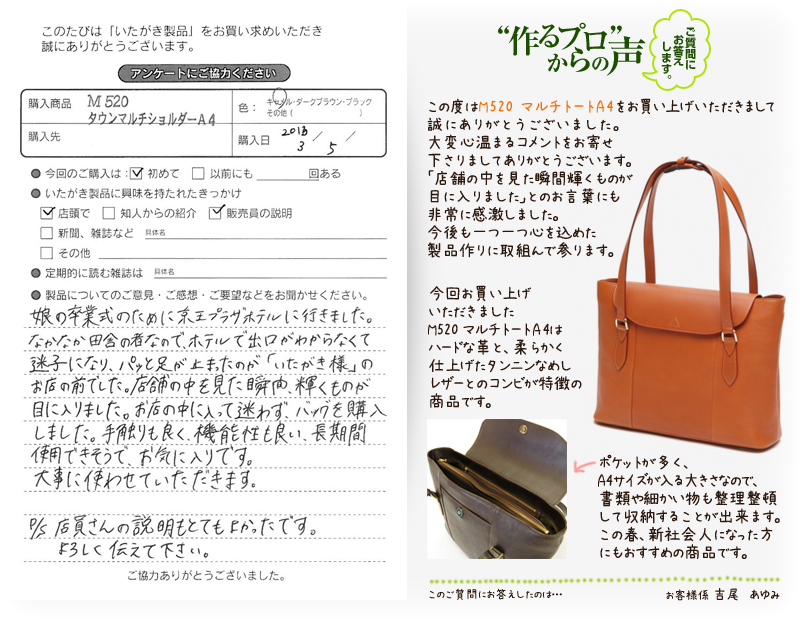 このたびは「いたがき製品」をお買い求めいただき
誠にありがとうございます。
アンケートにご協力ください
購入商品 M520
タウンマルチショルダーA4
色： キャメル・ダークブラウン・ブラック
その他（ ）
購入先
購入日 2013/3/5
今回のご購入は： 初めて 以前にも 回ある
いたがき製品に興味を持たれたきっかけ
店頭で 知人からの紹介 販売員の説明
新聞、雑誌など 具体名
その他
定期的に読む雑誌は 具体名
製品についてのご意見・ご感想・ご要望などをお聞かせください。
娘の卒業式のために京王プラザホテルに行きました。
なかなか田舎の者なので、ホテルで出口がわからなくて
迷子になり、パッと足が止まったのが「いたがき様」の
お店の前でした。店舗の中を見た瞬間、輝くものが
目に入りました。お店の中に入って迷わず、バッグを購入
しました。手触りも良く、機能性も良い、長期間
使用できそうで、お気に入りです。
大事に使わせていただきます。
P/S 店員さんの説明もとてもよかったです。
よろしく伝えて下さい。
ご協力ありがとうございました。
“作るプロ”
からの声
ご質問に
お答え
します。
この度はM520 マルチトートA4をお買い上げいただきまして
誠にありがとうございました。
大変心温まるコメントをお寄せ
下さりましてありがとうございます。
「店舗の中を見た瞬間輝くものが
目に入りました」とのお言葉にも
非常に感激しました。
今後も一つ一つ心を込めた
製品作りに取組んで参ります。
今回お買い上げ
いただきました
M520 マルチトートA4は
ハードな革と、柔らかく
仕上げたタンニンなめし
レザーとのコンビが特徴の
商品です。
ポケットが多く、
A4サイズが入る大きさなので、
書類や細かい物も整理整頓
して収納することが出来ます。
この春、新社会人になった方
にもおすすめの商品です。
このご質問にお答えしたのは… お客様係 吉尾 あゆみ